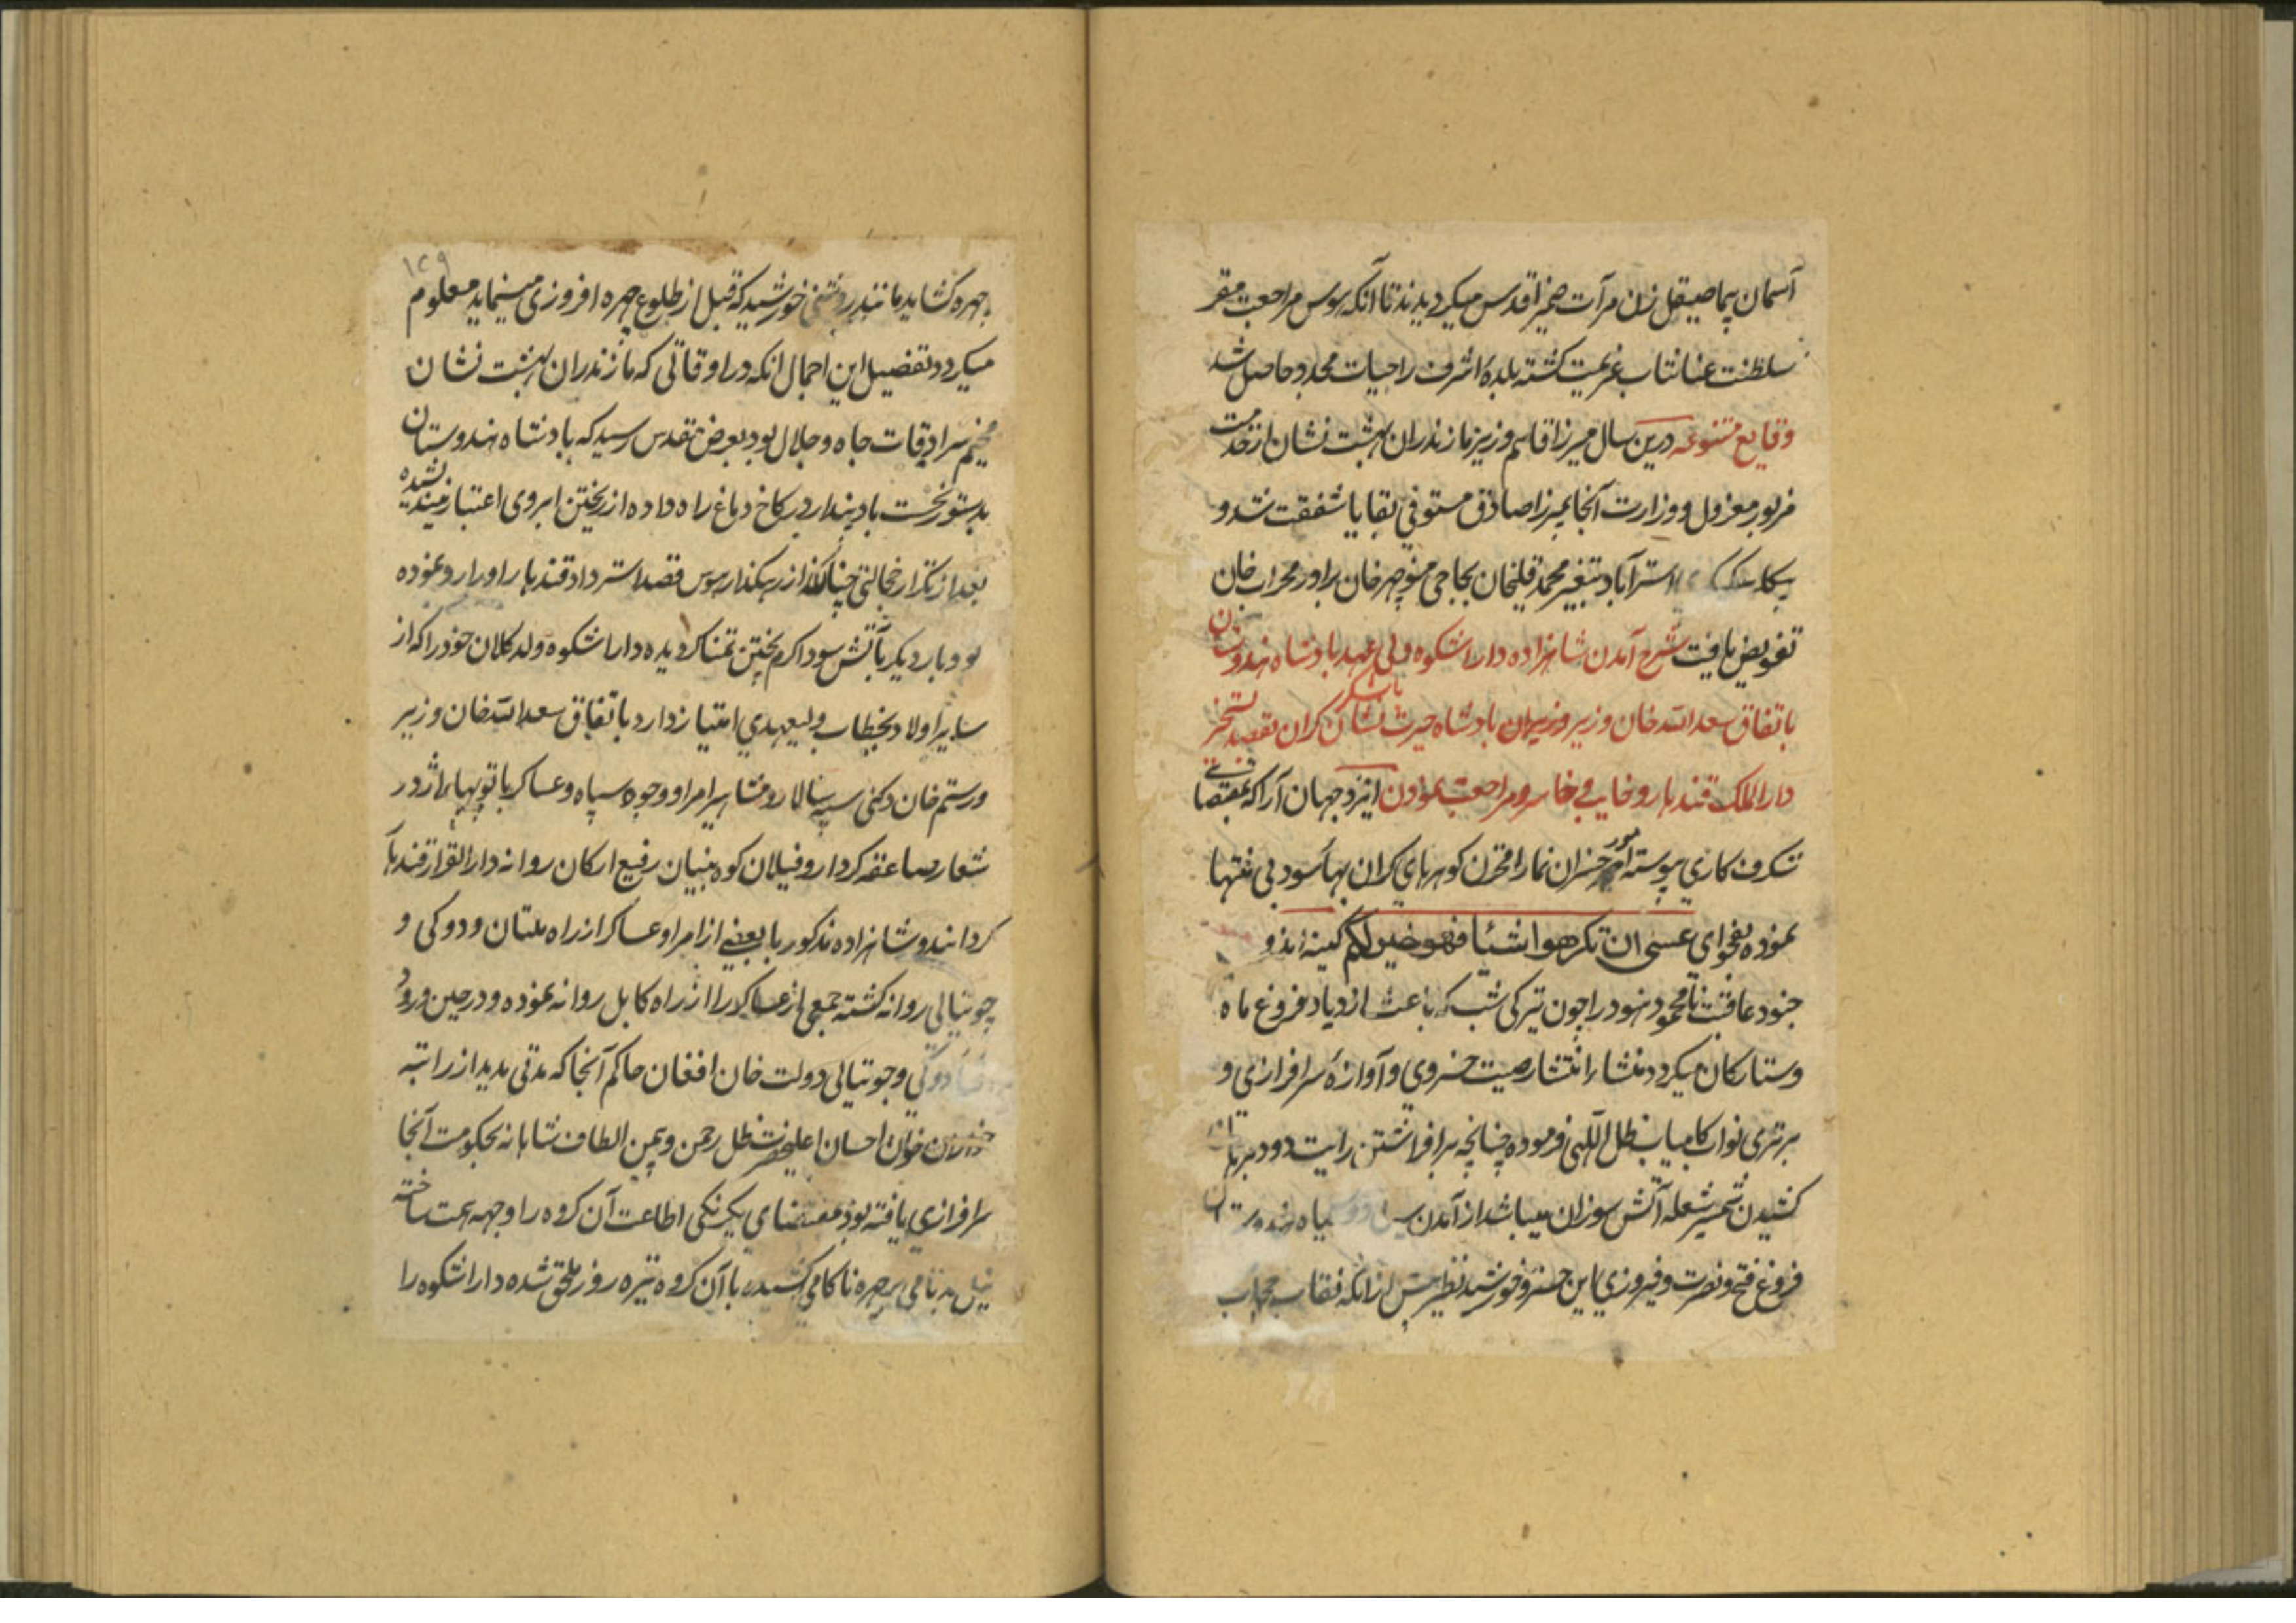 آسمان پیما صیقل زن مرآت ضمیر اقدس میکردیدند تا آنکه بوس مراجعت مقر
سلطنت عنانتاب عزیمت کشته بلده اشرف را حیات مجدد حاصل شد
وقایع متنوعه درین سال میرزا قاسم وزیر مازندران بهشت نشان از خدمت
مزبور معزول و وزارت آنجا بمیرزا صادق مستوفی بقایا شفقت شد و
استرآباد بتغیر محمد قلیخان بجاجی منوچهر خان برادر محراب خان
تفویض یافت شرح آمدن شاهزاده دارا شکوه ولی عهد پادشاه هندوستان
باتفاق سعد الله خان وزیر و وزیران پادشاه حیرت نشان با لشکر کران بقصد تسخیر
دار الملک قندهار و خایب و خاسر مراجعت نمودن ایزد جهان آرا که بمقتضای
شکرف کاری پیوسته امور خسران نما را مخزن کوهرهای کران بها سود بی منتها
نموده بفحوای عسی ان تکرهوا شئا فهو خیر لکم کینه اندو
جنود عاقبت نامحمود هنود را چون تیرکی شب که باعث ازدیاد فروغ ماه
و ستارکان میکردد منشاء انتشار صیت خسروی و آوازه سرافرازی و
برتری نواب کامیاب ظل اللهی فرموده چنانچه برافراشتن رایت دود
کشیدن شمشیر شعله آتش سوزان میباشد از آمدن سیاه هندوستان
فروغ فتح و نصرت و فیروزی این خسرو خورشید نظیر پیش از آنکه نقاب حجاب
۱۲۹
چهره کشاید مانند روشنی خورشید که قبل از طلوع چهره افروزی مینماید معلوم
میکردد تفصیل این اجمال انکه در اوقاتی که مازندران بهشت نشان
مخیم سرادقات جاه و جلال بود بعرض مقدس رسید که پادشاه هندوستان
بدستور نخست باد پندار در کاخ دماغ راه داده از ریختن ابروی اعتبار نیندیشیده
بعد از تکرار خجالتی چنان از رهکذار بوس قصد استرداد قندهار را و را رو نموده
بود بار دیکر بآتش سودا کرم پختن تمنا کردیده دارا شکوه ولد کلان خود را که از
سایر اولاد بخطاب ولیعهدی امتیاز دارد باتفاق سعد الله خان وزیر
و رستم خان دکنی سپه سالار و مشاهیر امرا و وجوه سپاه و عساکر با توپهای اژدر
شعار صاعقه کردار و فیلان کوه بنیان رفیع ارکان روانه دار القرار قندهار
کردانند و شاهزاده مذکور با بعضی از امرا و عساکر از راه ملتان و دوکی و
چوتیالی روانه کشته جمعی از عساکر را از راه کابل روانه نموده و در حین ورود
دوکی و چوتیالی دولت خان افغان حاکم آنجا که مدتی مدید از راتبه
خوان احسان اعلیحضرت ظل رحمن و یمن الطاف شاهانه بحکومت آنجا
سرافرازی یافته بود بمقتضای یکرنکی اطاعت آن کروه را وجهه همت ساخته
نیل بدنامی بر چهره ناکامی کشیده با آن کروه تیره روز ملحق شده دارا شکوه را